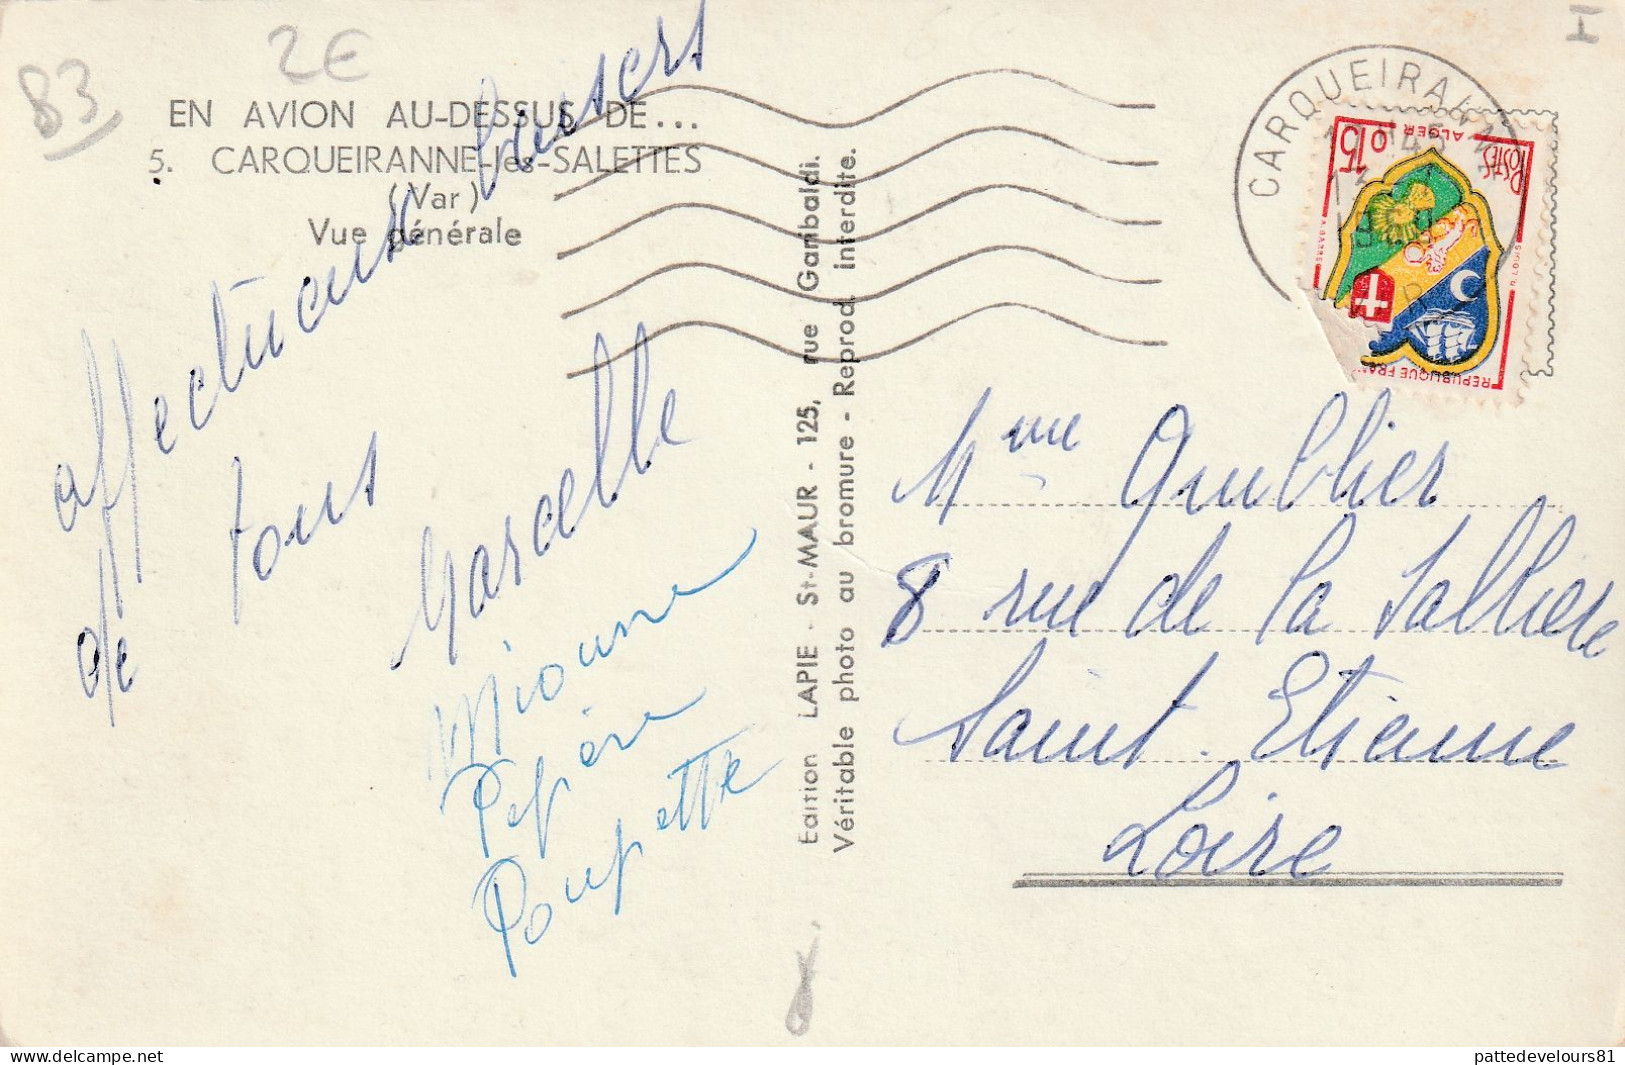 B3
2€
I
EN AVION AU-DESSUS DE...
5. CARQUEIRANNE-les-SALETTES
(Var)
Vue générale
affectueux baisers
de tous
Marcelle
Mioune
Pepère
Poupette
Edition LAPIE - St-MAUR - 125, rue Garibaldi.
Véritable photo au bromure - Reprod. interdite.
CARQUEIRANNE
POSTES
0,15
ALGER
REPUBLIQUE FRAN
Mme
8 rue de la Sallière
Saint-Etienne
Loire
www.delcampe.net
pattedevelours81